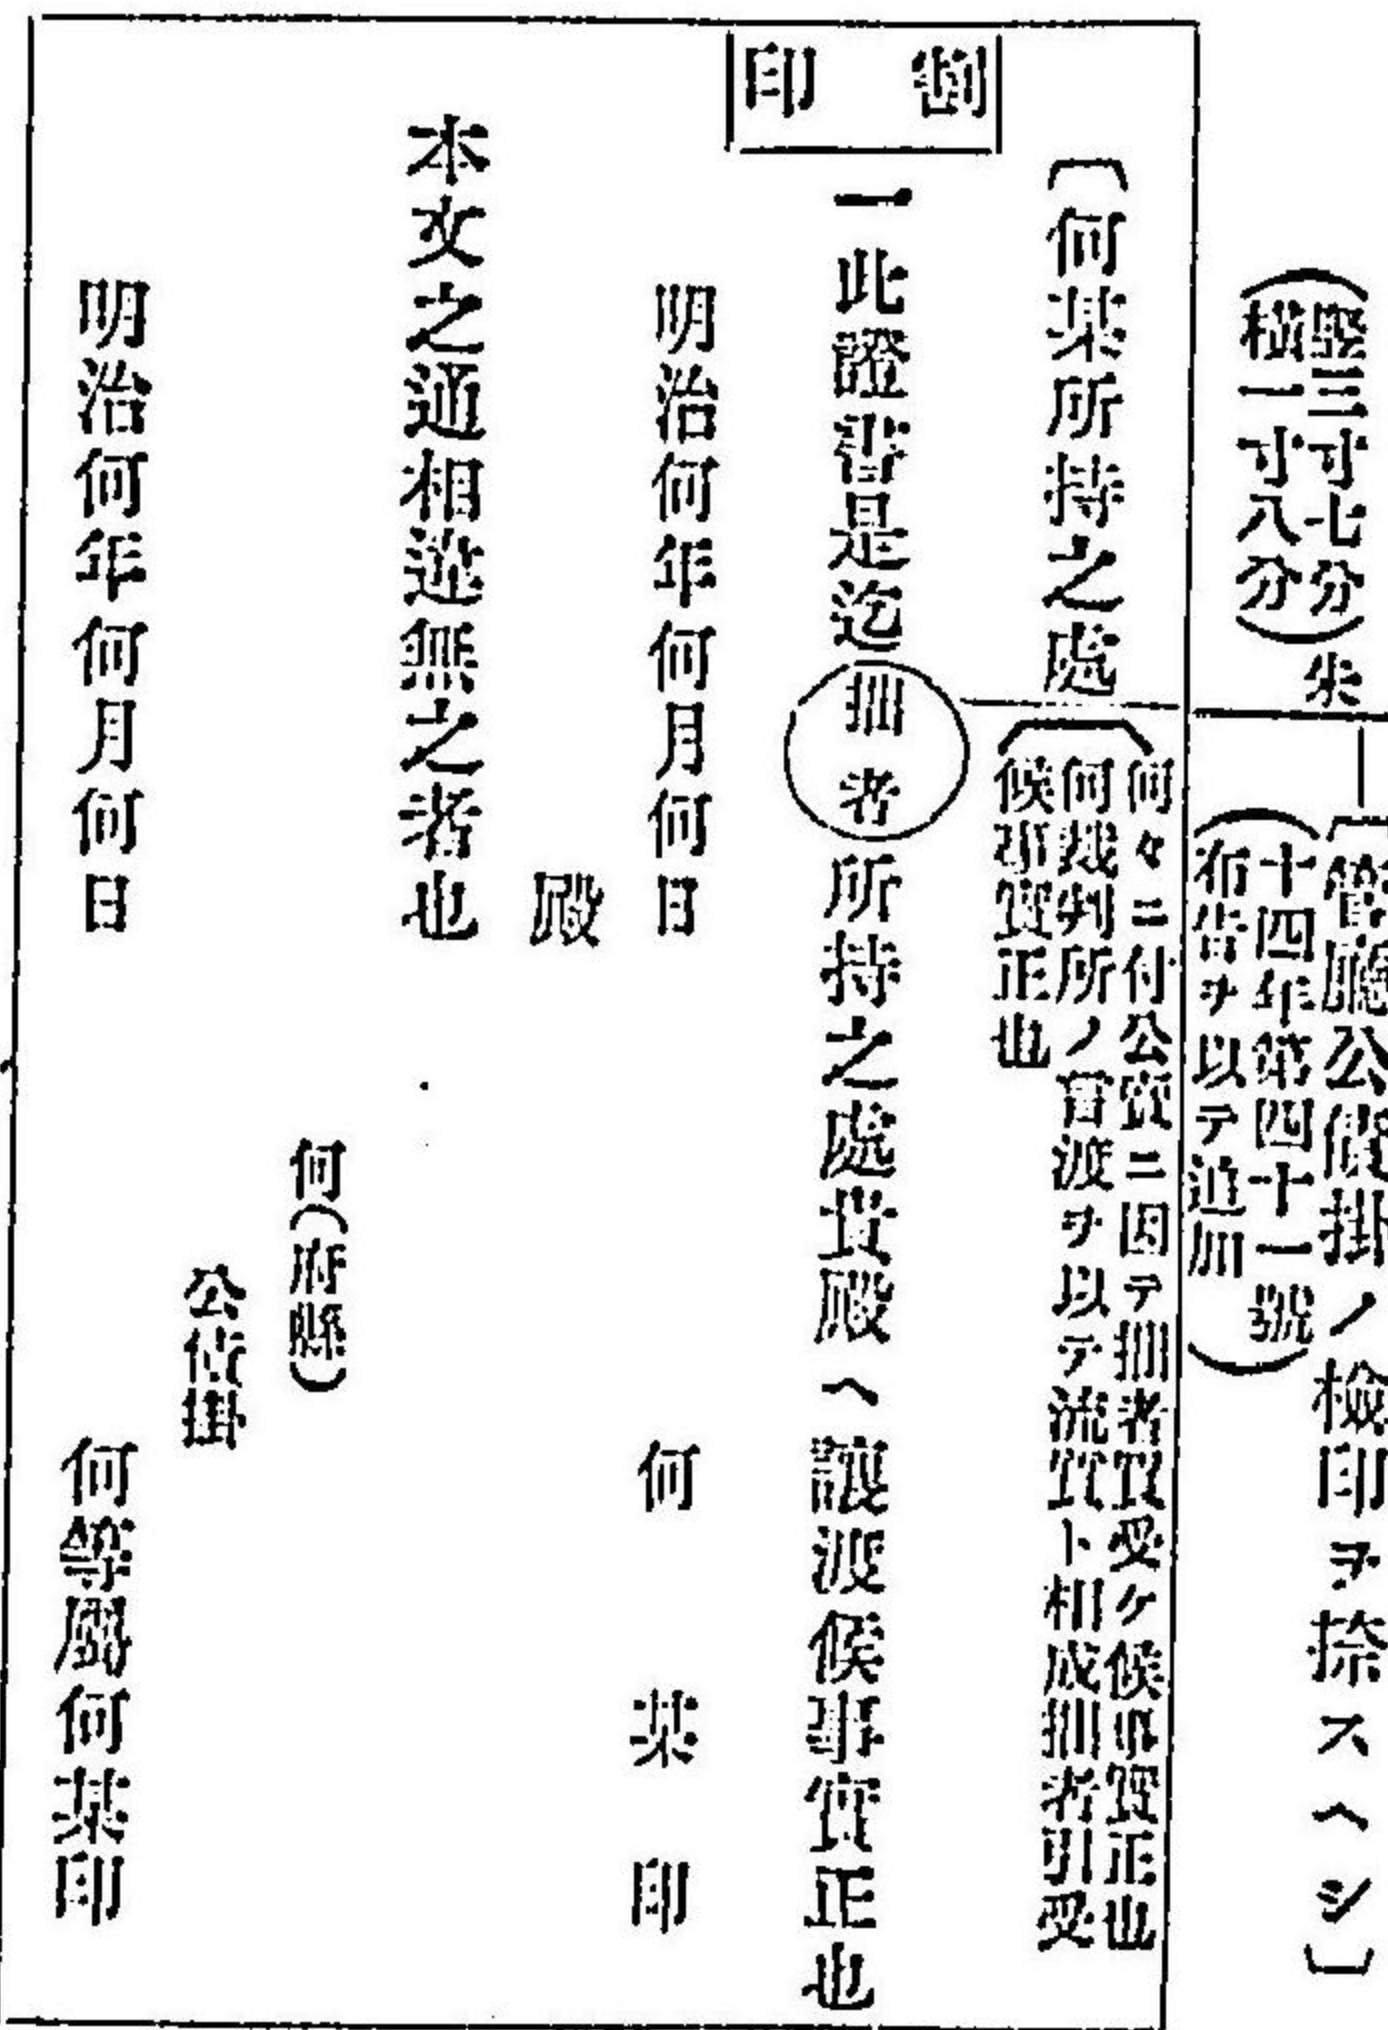 (竪三寸七分
橫一寸八分)朱
〔管廳公債掛ノ檢印ヲ捺スヘシ〕
(十四年第四十一號
布告ヲ以テ追加)
〔何某所持之處
〔何々ニ付公賣ニ因テ拙者買受ケ候事實正也
何裁判所ノ言渡ヲ以テ流質ト相成拙者引受
候事實正也
割印
一此證書是迄拙者所持之處貴殿ヘ讓渡候事實正也
明治何年何月何日
何某印
殿
本文之通相違無之者也
何(府縣)
公債掛
明治何年何月何日
何等屬何某印